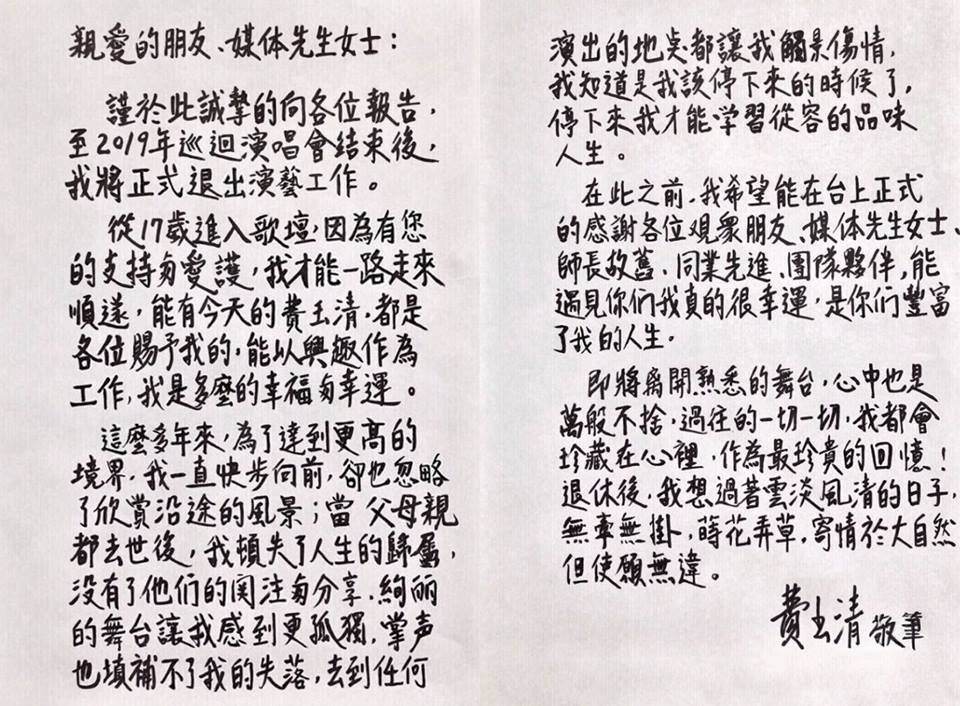 親愛的朋友、媒体先生女士：
謹於此誠摯的向各位報告，
至2019年巡迴演唱會結束後，
我將正式退出演藝工作。
從17歲進入歌壇，因為有您
的支持與愛護，我才能一路走來
順遂，能有今天的費玉清，都是
各位賜予我的，能以興趣作為
工作，我是多麼的幸福與幸運。
這麼多年來，為了達到更高的
境界，我一直快步向前，卻也忽略
了欣賞沿途的風景；當父母親
都去世後，我頓失了人生的歸屬，
没有了他们的関注與分享，絢丽
的舞台讓我感到更孤獨，掌声
也填補不了我的失落，去到任何
演出的地奌都讓我觸景傷情，
我知道是我該停下來的時候了，
停下來我才能学習從容的品味
人生。
在此之前，我希望能在台上正式
的感謝各位观眾朋友、媒体先生女士、
師長故舊、同業先進、團隊夥伴，能
遇見你们我真的很幸運，是你们豐富
了我的人生。
即將离開熟悉的舞台，心中也是
萬般不捨，過往的一切一切，我都會
珍藏在心裡，作為最珍貴的回憶！
退休後，我想過著雲淡風清的日子，
無牽無掛，蒔花弄草，寄情於大自然
但使願無違。
費玉清 敬筆